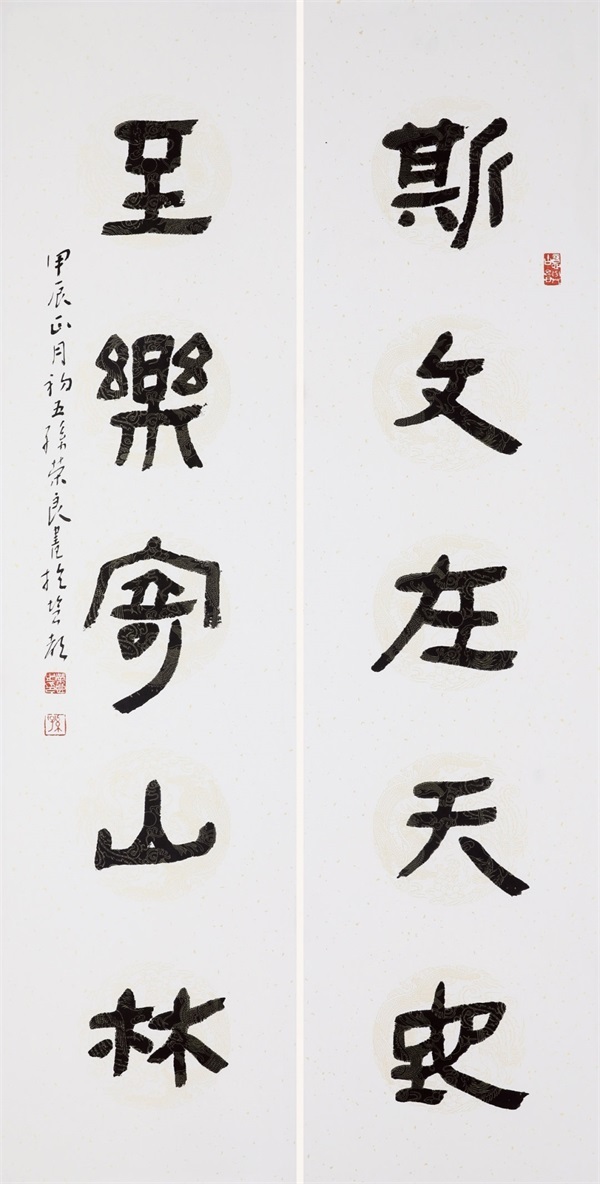 斯文在天地
至樂寄山林
甲辰正月初五孫荣良書於都